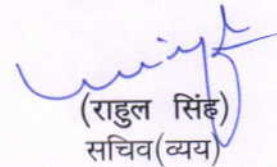 (राहुल सिंह)
सचिव(व्यय)